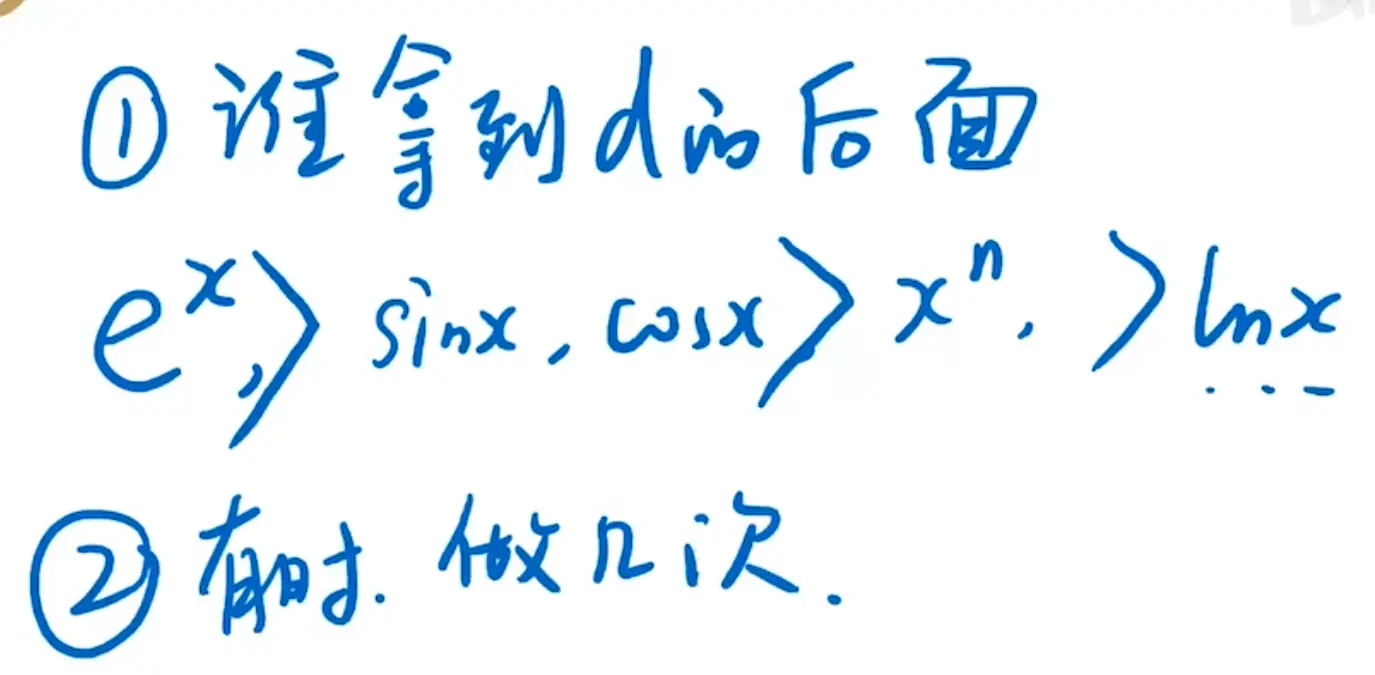 ① 谁拿到d的后面
e^x, > sinx, cosx > x^n, > lnx
② 有时. 做几次.